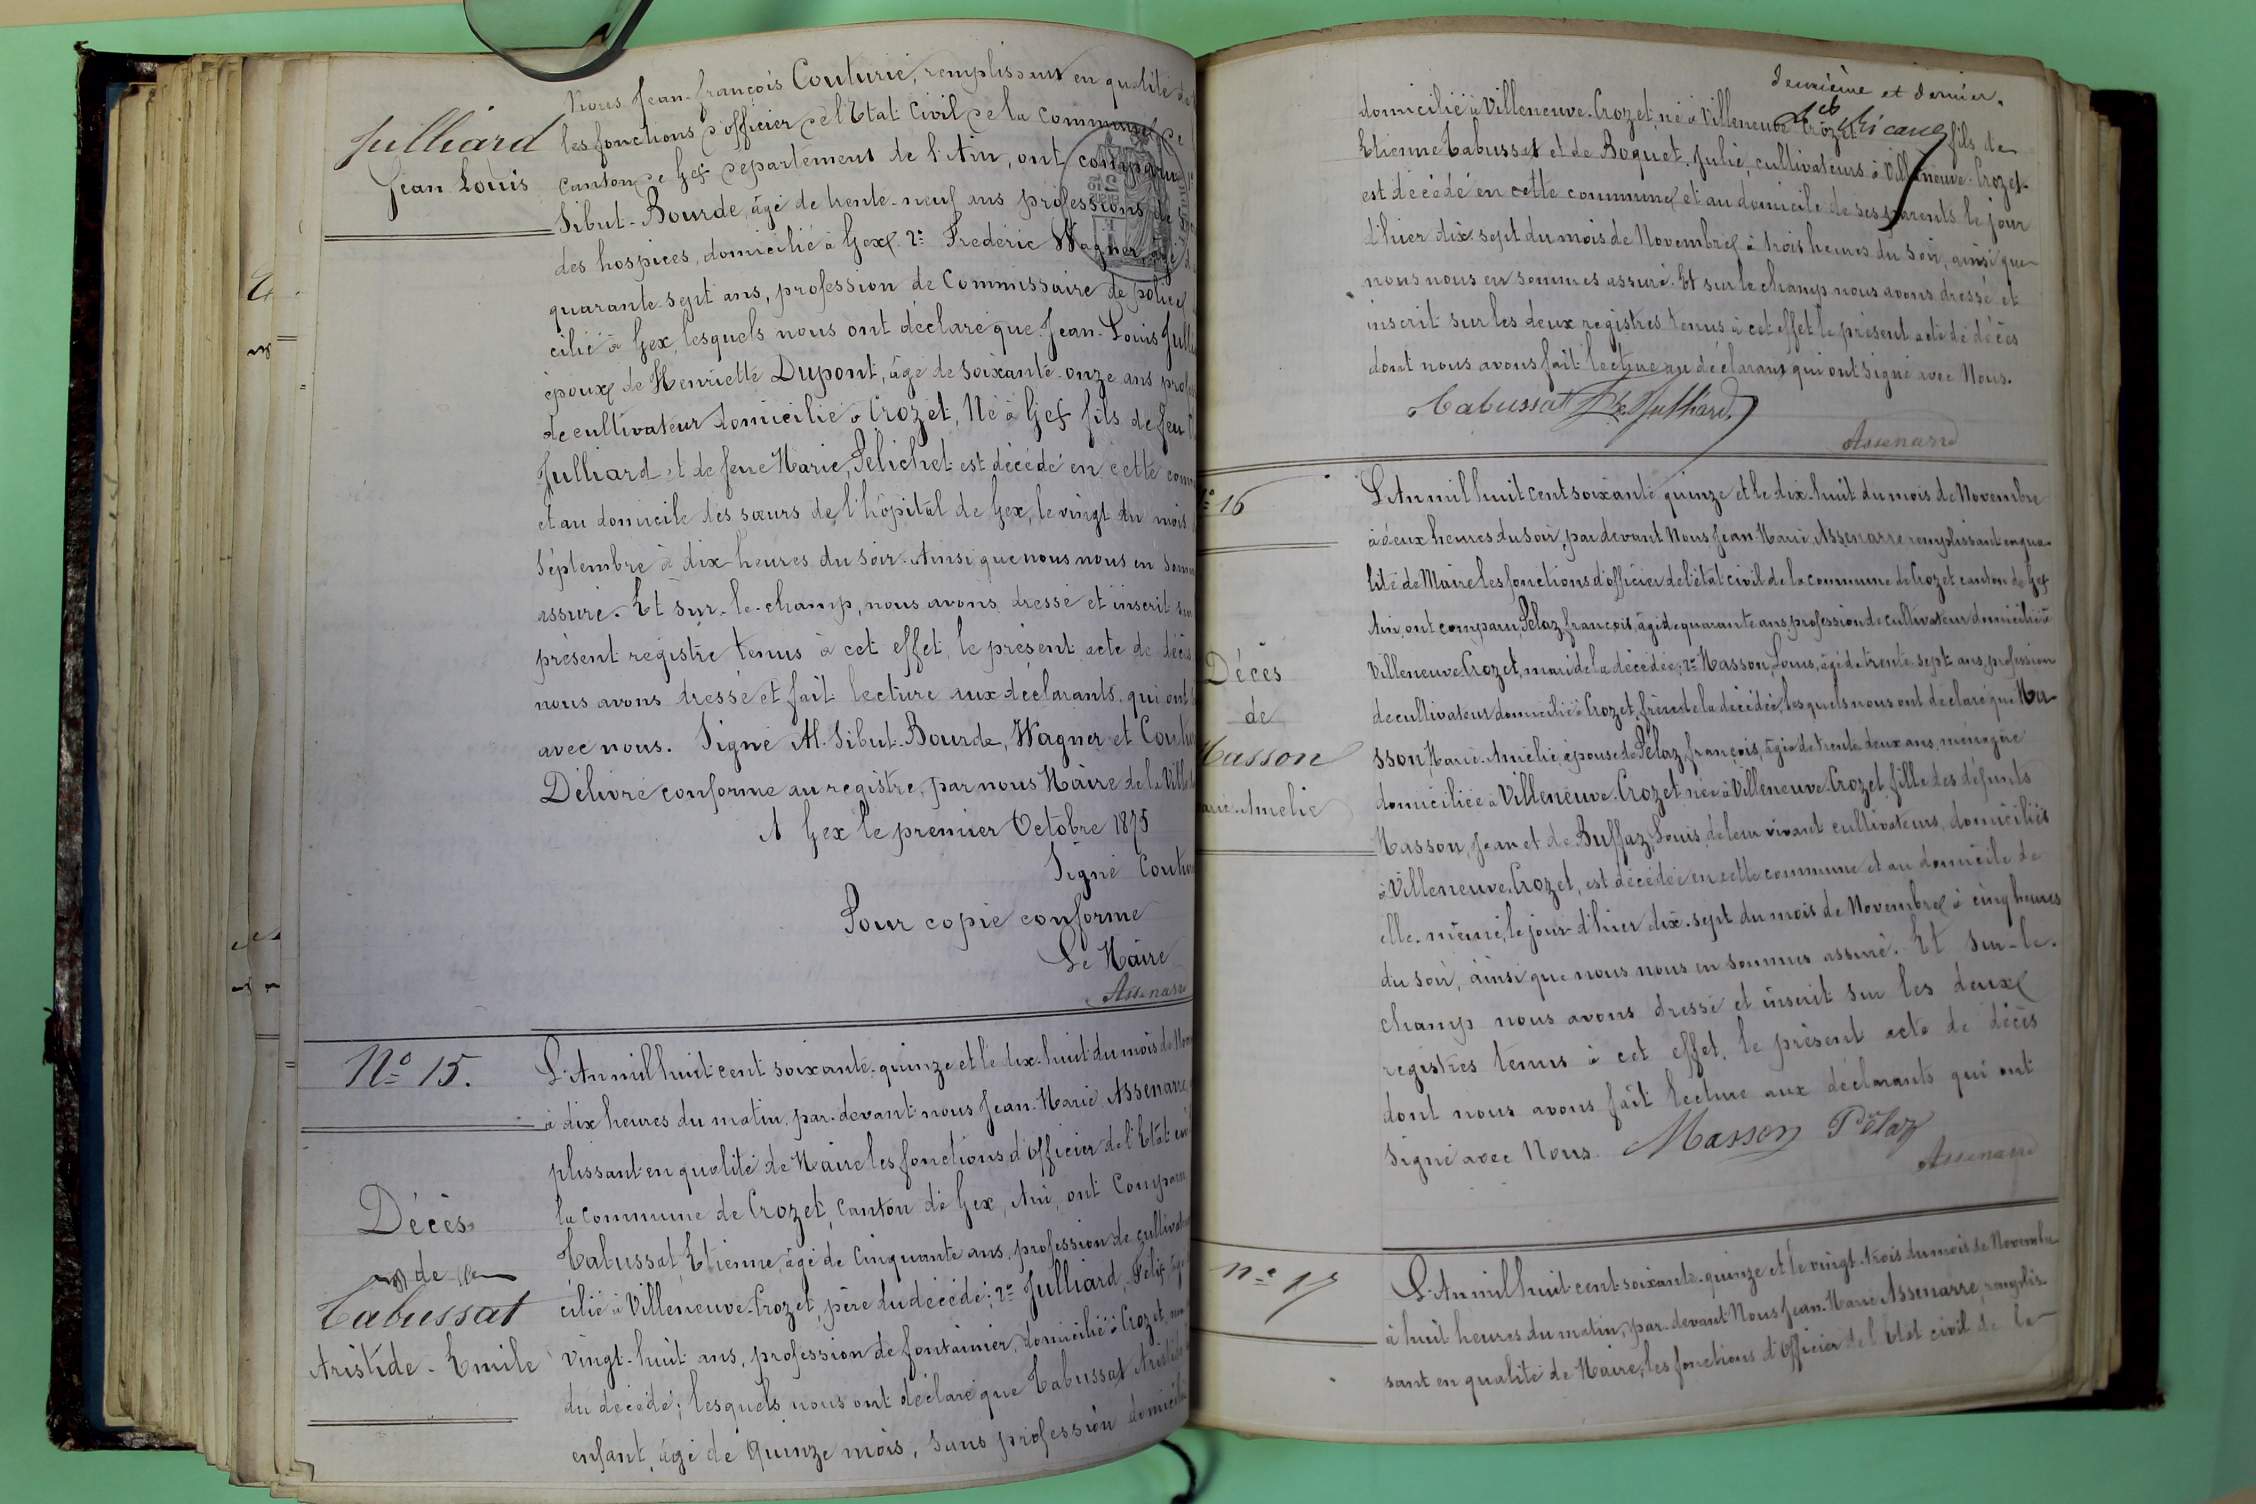 Julliard
Jean Louis
Nous Jean-françois Couturié, remplissant en qualité de
les fonctions d'officier de l'Etat Civil de la Commune de
Canton de Gex département de l'Ain, ont comparu
Sibut-Bourde, âgé de trente-neuf ans profession de
des hospices, domicilié à Gex, 2° Frédéric Wagner, âgé
quarante-sept ans, profession de Commissaire de police
cilié à Gex, lesquels nous ont déclaré que Jean-Louis Julli
époux de Henriette Dupont, âgé de soixante-onze ans prof
de cultivateur domicilié à Crozet, Né à Gex fils de feu
Julliard et de feue Marie, Pelichet est décédé en cette com
et au domicile des sœurs de l'hôpital de Gex, le vingt du mois
Septembre à dix heures du soir. Ainsi que nous nous en somm
assuré. Et sur-le-champ, nous avons dressé et inscrit sur
présent registre tenus à cet effet, le présent acte de décès
nous avons dressé et fait lecture aux déclarants, qui ont
avec nous. Signé Al. Sibut-Bourde, Wagner et Coutu
Délivré conforme au registre, par nous Maire de la Ville
A Gex le premier Octobre 1875
Signé Coutu
Pour copie conforme
Le Maire
Assenarre
N° 15.
Décès
de
Tabussat
Aristide-Emile
L'An mil huit cent soixante-quinze et le dix-huit du mois de Nov
à dix heures du matin, par-devant nous Jean-Marie Assenarre
plissant en qualité de Maire les fonctions d'Officier de l'Etat civil
la commune de Crozet, Canton de Gex, Ain, ont Comparu
Tabussat, Etienne, âgé de Cinquante ans, profession de cultivateur
cilié à Villeneuve-Crozet, père du décédé; 2° Julliard, Felix, âgé
vingt-huit ans, profession de fontainier, domicilié à Crozet,
du décédé; lesquels nous ont déclaré que Tabussat Aristide
enfant, âgé de quinze mois, sans profession domicilié
deuxième et dernier.
domicilié à Villeneuve-Crozet, né à Villeneuve-Crozet fils de
Etienne Tabussat et de Boquet, Julie, cultivateurs à Villeneuve-Crozet
est décédé en cette commune et au domicile de ses parents le jour
d'hier dix-sept du mois de Novembre à trois heures du soir, ainsi que
nous nous en sommes assuré. Et sur le champ nous avons dressé et
inscrit sur les deux registres tenus à cet effet le présent acte de décès
dont nous avons fait lecture au déclarans qui ont signé avec Nous.
Tabussat Fx Julliard
Assenarre
N° 16
Décès
de
Masson
Marie-Amelie
L'An mil huit cent soixante quinze et le dix-huit du mois de Novembre
à deux heures du soir, par devant Nous Jean-Marie, Assenarre remplissant en qua-
lité de Maire les fonctions d'officier de l'état civil de la commune de Crozet canton de Gex
Ain, ont comparu, Pelaz, françois, âgé de quarante ans, profession de cultivateur domicilié à
Villeneuve-Crozet, mari de la décédée; 2° Masson, Louis, âgé de trente-sept ans, profession
de cultivateur domicilié à Crozet, frère de la décédée, lesquels nous ont déclaré que Ma-
sson, Marie-Amélie, épouse de Pelaz, françois, âgée de trente deux ans, ménagère
domiciliée à Villeneuve-Crozet née à Villeneuve-Crozet fille des défunts
Masson, Jean et de Buffaz, Louis, de leur vivant cultivateurs, domiciliés
à Villeneuve-Crozet, est décédée en cette commune et au domicile de
elle-même, le jour d'hier dix-sept du mois de Novembre à cinq heures
du soir, ainsi que nous nous en sommes assuré. Et sur-le-
champ nous avons dressé et inscrit sur les deux
registres tenus à cet effet, le présent acte de décès
dont nous avons fait lecture aux déclarants qui ont
signé avec Nous. Masson Pélaz
Assenarre
N° 17
L'An mil huit cent soixante-quinze et le vingt-trois du mois de Novembre
à huit heures du matin, par-devant Nous Jean-Marie Assenarre, remplis-
sant en qualité de Maire, les fonctions d'Officier de l'Etat civil de la